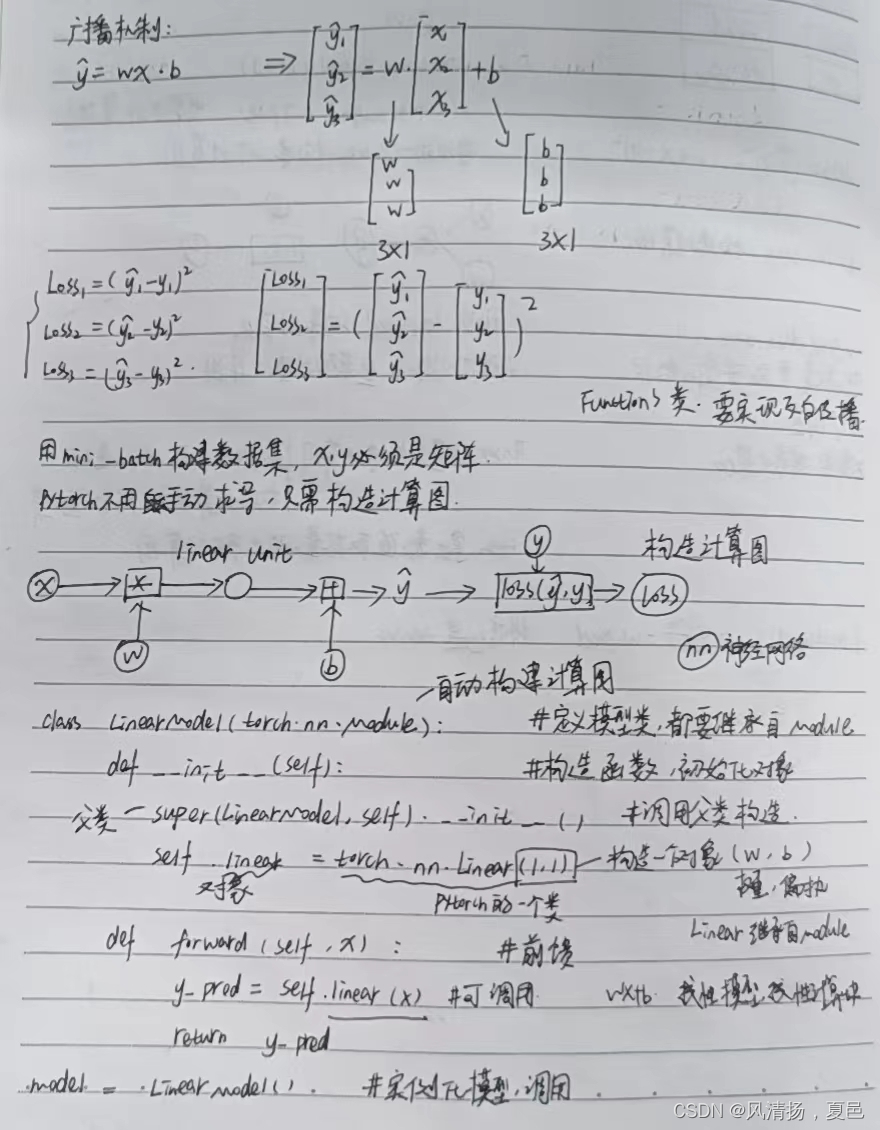 广播机制:
ŷ = wx · b ⇒ [ŷ1 ŷ2 ŷ3] = w · [x1 x2 x3] + b
[w w w] [b b b]
3X1 3X1
Loss1 = (ŷ1 - y1)²
Loss2 = (ŷ2 - y2)²
Loss3 = (ŷ3 - y3)².
[Loss1 Loss2 Loss3] = ([ŷ1 ŷ2 ŷ3] - [y1 y2 y3])²
Functions 类. 要实现反向传播
用mini-batch构建数据集, x,y必须是矩阵.
Pytorch不用手动求导, 只需构造计算图.
linear unit y 构造计算图
x * + ŷ loss(ŷ,y) Loss
w b nn 神经网络
自动构建计算图
class LinearModel(torch.nn.Module): #定义模型类, 都要继承自module
def __init__(self): #构造函数, 初始化对象
父类 super(LinearModel, self).__init__() #调用父类构造.
self.linear = torch.nn.Linear(1,1) 构造一个对象(w, b)
对象 Pytorch的一个类 权重, 偏执
Linear继承自module
def forward(self, x): #前馈
y_pred = self.linear(x) #可调用. wx+b. 线性模型
return y_pred
model = LinearModel(). #实例化模型, 调用
CSDN @风清扬，夏邑